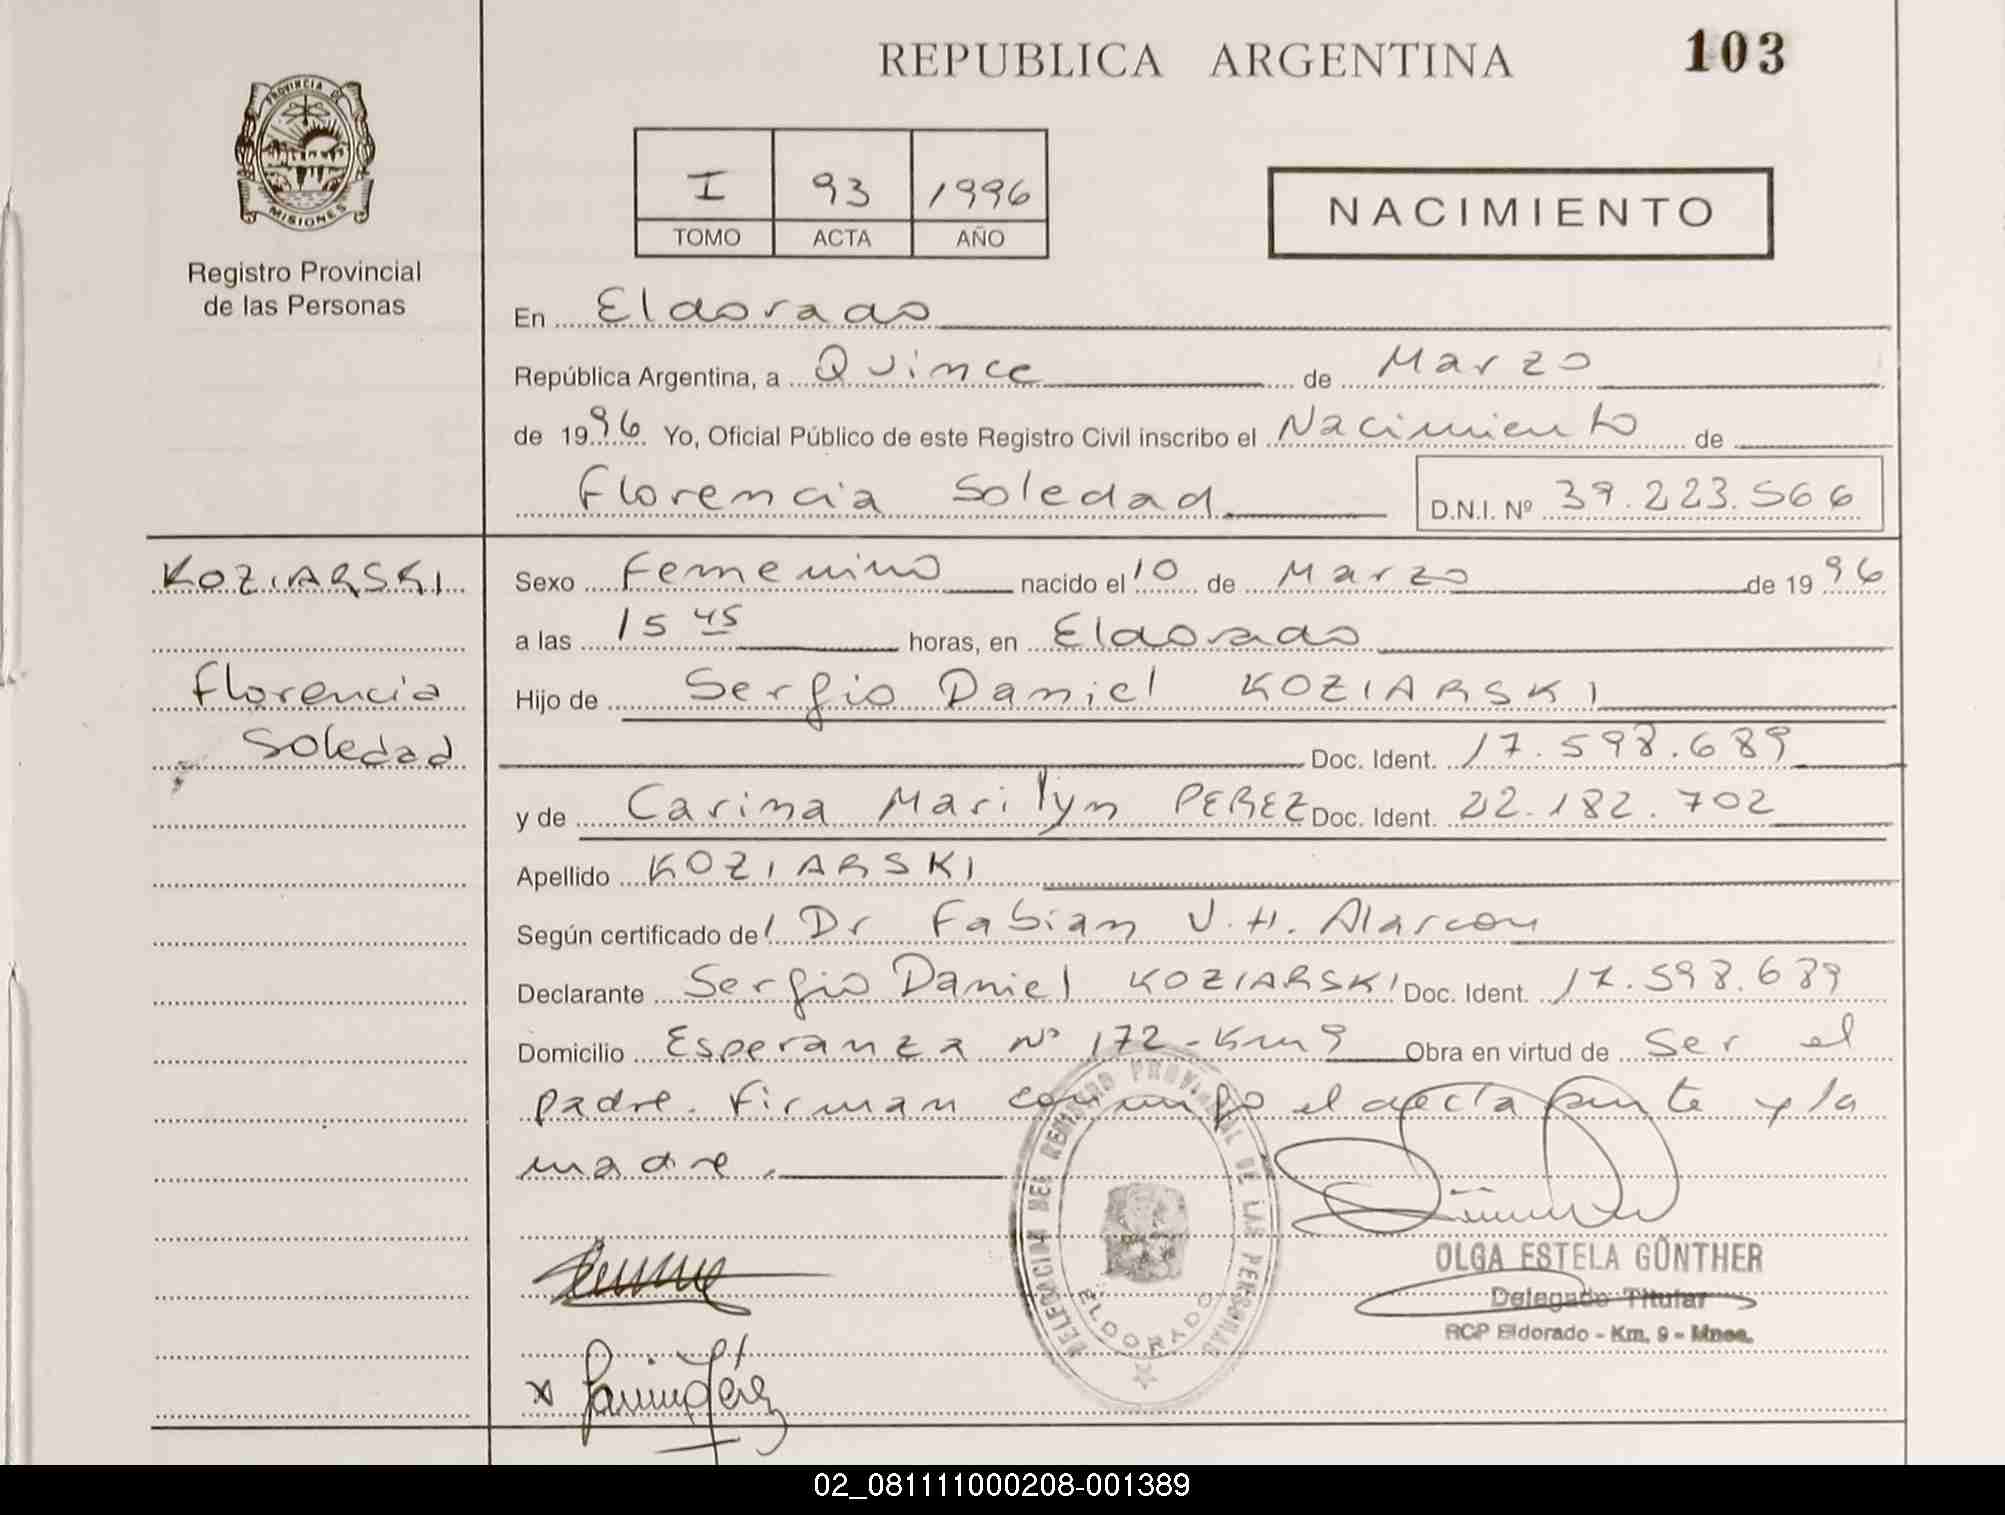 REPUBLICA ARGENTINA
103
PROVINCIA DE
MISIONES
Registro Provincial
de las Personas
I 93 1996
TOMO ACTA AÑO
NACIMIENTO
En Eldorado
República Argentina, a Quince de Marzo
de 1996 Yo, Oficial Público de este Registro Civil inscribo el Nacimiento de
Florencia Soledad D.N.I. Nº 39.223.566
KOZIARSKI
Florencia
Soledad
Sexo Femenino nacido el 10 de Marzo de 1996
a las 15 45 horas, en Eldorado
Hijo de Sergio Daniel KOZIARSKI
Doc. Ident. 17.598.689
y de Carina Marilyn PEREZ Doc. Ident. 22.182.702
Apellido KOZIARSKI
Según certificado del Dr Fabian V.H. Alarcon
Declarante Sergio Daniel KOZIARSKI Doc. Ident. 17.598.689
Domicilio Esperanza Nº 172 - Km 9 Obra en virtud de Ser el
padre. Firman conmigo el declarante y la
madre.
DELEGACION DEL REGISTRO PROVINCIAL DE LAS PERSONAS
ELDORADO
OLGA ESTELA GÜNTHER
Delegado Titular
RCP Eldorado - Km. 9 - Mnes.
02_081111000208-001389